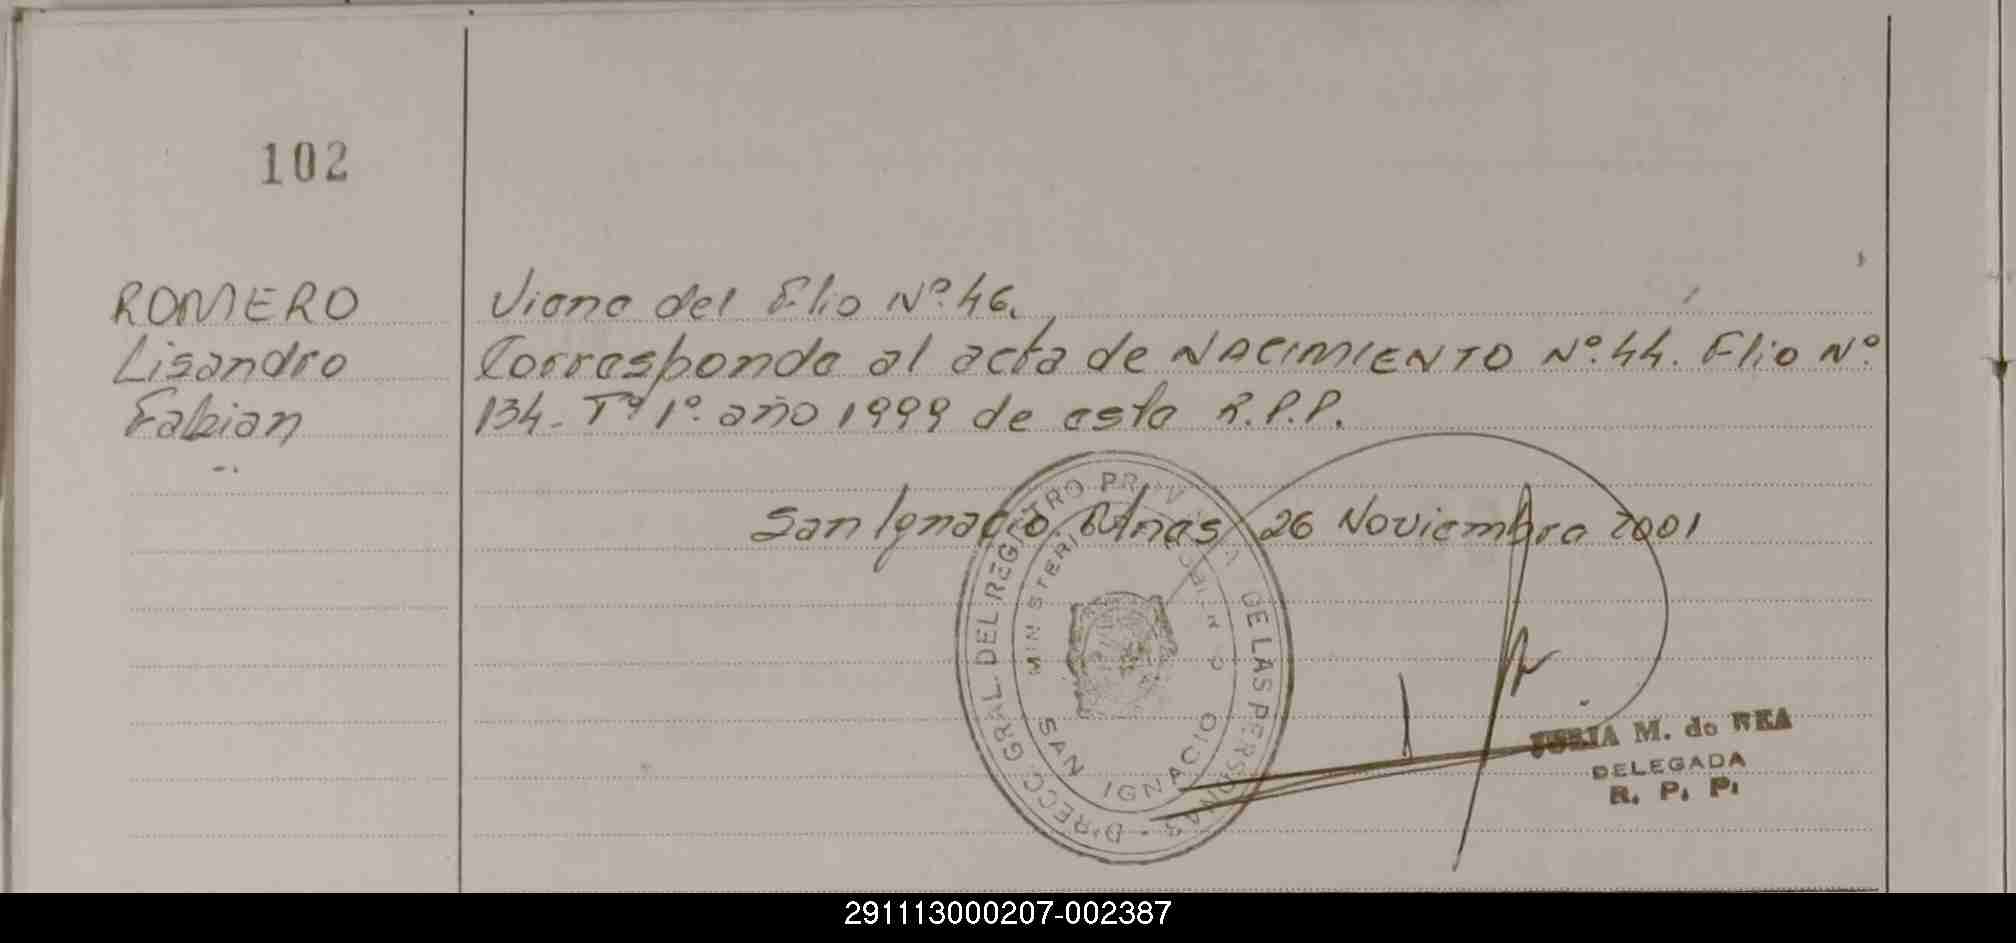 102
ROMERO
Lisandro
Fabian
Viene del Flio Nº. 46.
Corresponde al acta de NACIMIENTO Nº. 44. Flio Nº.
134. Tº 1º. año 1999 de este R.P.P.
San Ignacio. Mnes 26 Noviembre 2001
DIRECC GRAL. DEL REGISTRO PROVINCIAL DE LAS PERSONAS
MINISTERIO DE GOBIERNO
SAN IGNACIO
JULIA M. de REA
DELEGADA
R. P. P.
291113000207-002387